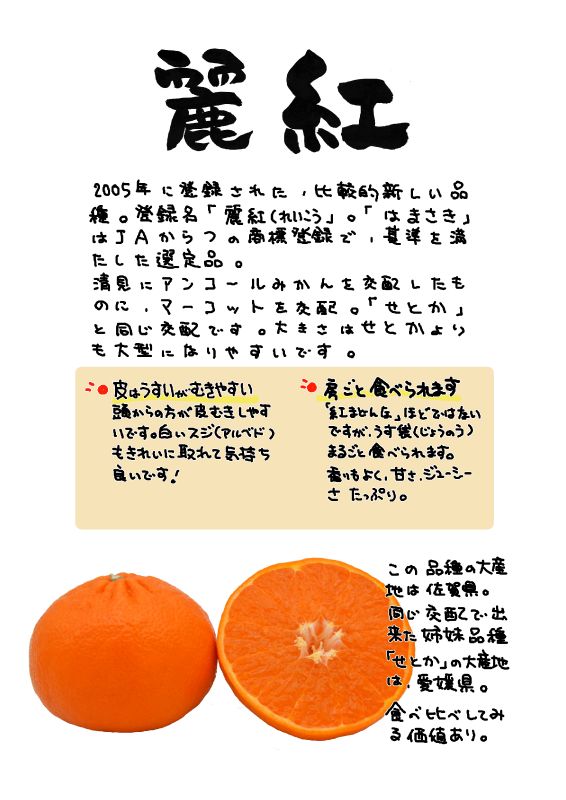 麗紅
2005年に登録された、比較的新しい品
種。登録名「麗紅(れいこう」。「はまさき」
はJAからつの商標登録で、基準を満
たした選定品。
清見にアンコールみかんを交配したも
のに、マーコットを交配。「せとか」
と同じ交配です。大きさはせとかより
も大型になりやすいです。
皮はうすいがむきやすい
頭からの方が皮むきしやす
いです。白いスジ(アルベド)
もきれいに取れて気持ち
良いです!
房ごと食べられます
「紅まどんな」ほどではない
ですが、うす袋(じょうのう)
まるごと食べられます。
香りもよく、甘さ、ジューシー
さたっぷり。
この品種の大産
地は佐賀県。
同じ交配で出
来た姉妹品種
「せとか」の大産地
は、愛媛県。
食べ比べしてみ
る価値あり。